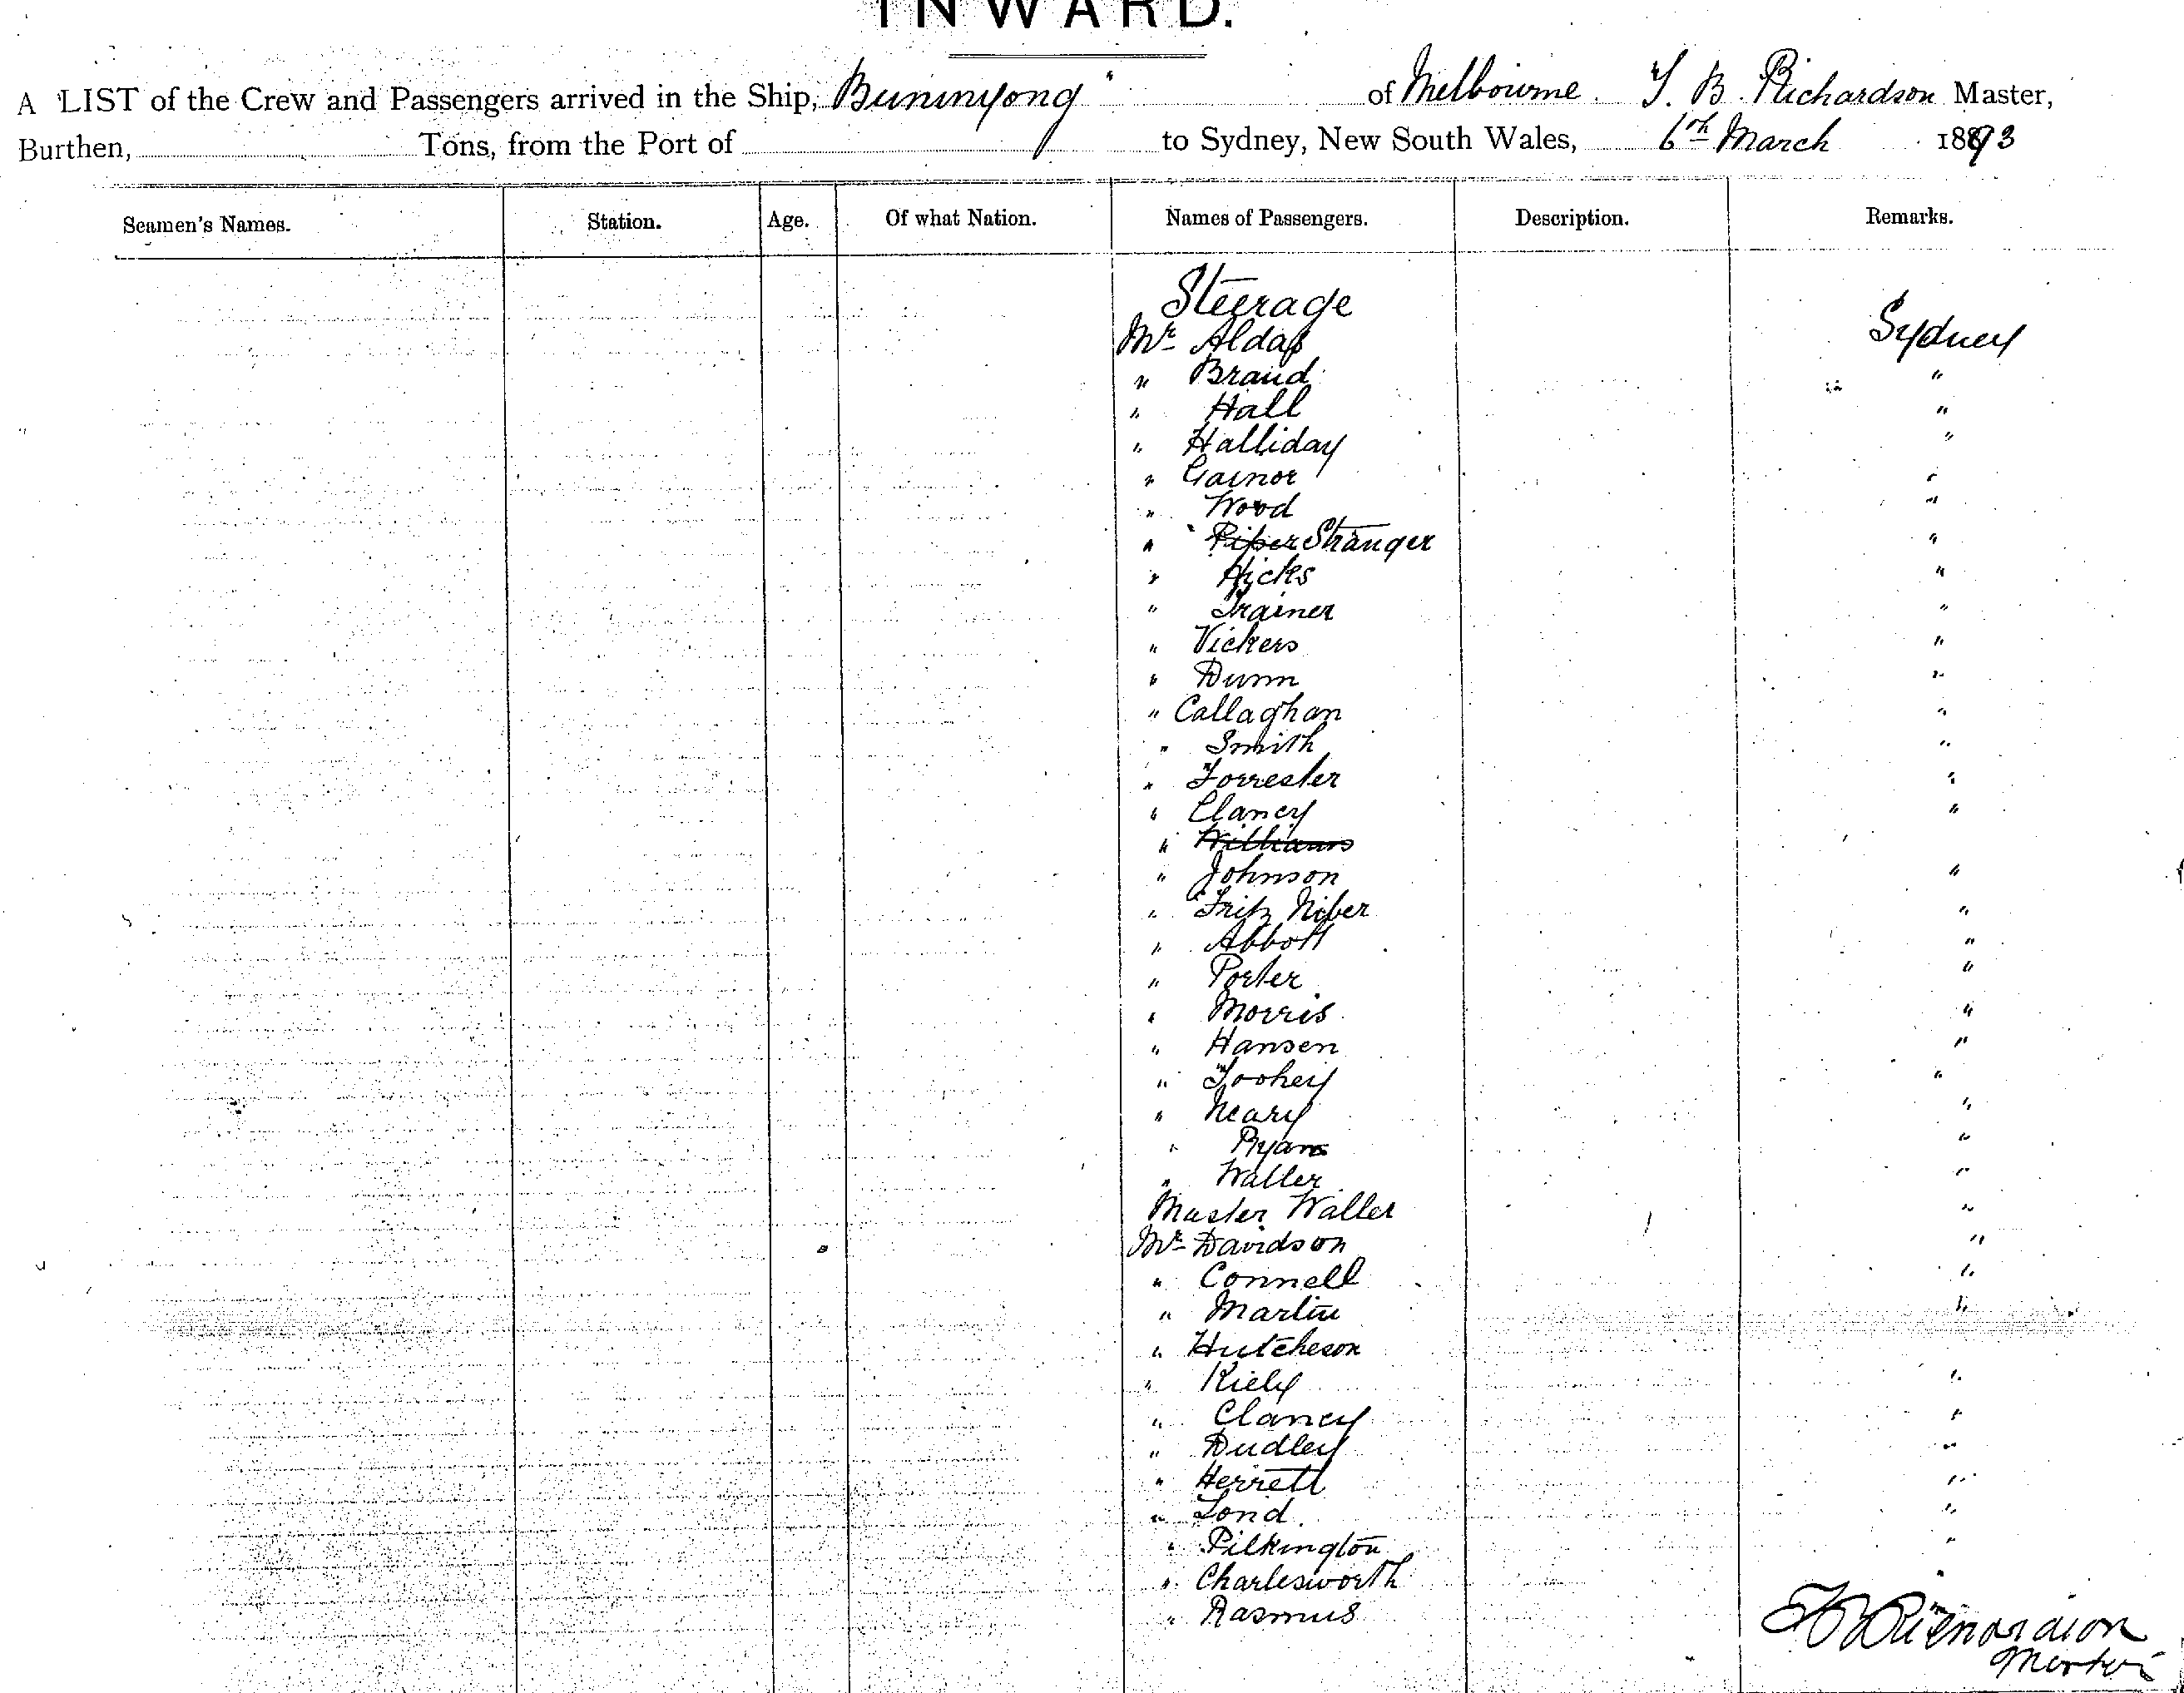 INWARD.
A LIST of the Crew and Passengers arrived in the Ship, Buninyong of Melbourne. T. B. Richardson Master,
Burthen, Tons, from the Port of to Sydney, New South Wales, 6th March 1893
Seamen's Names. Station. Age. Of what Nation. Names of Passengers. Description. Remarks.
Steerage
Mr Aldaß Sydney
" Braud "
" Hall "
" Halliday "
" Gainor "
" Wood "
" Piper Stranger "
" Hicks "
" Trainer "
" Vickers "
" Dunn "
" Callaghan "
" Smith "
" Forrester "
" Clancy "
" Williams
" Johnson "
" Fritz Niber "
" Abbott "
" Porter "
" Morris "
" Hansen "
" Toohey "
" Neary "
" Ryan "
" Waller "
Master Waller "
Mr Davidson "
" Connell "
" Martin "
" Hutcheson
" Kiely "
" Clancy "
" Dudley "
" Herrett "
" Lond. "
" Pilkington "
" Charlesworth "
" Rasmus
Richardson
Master